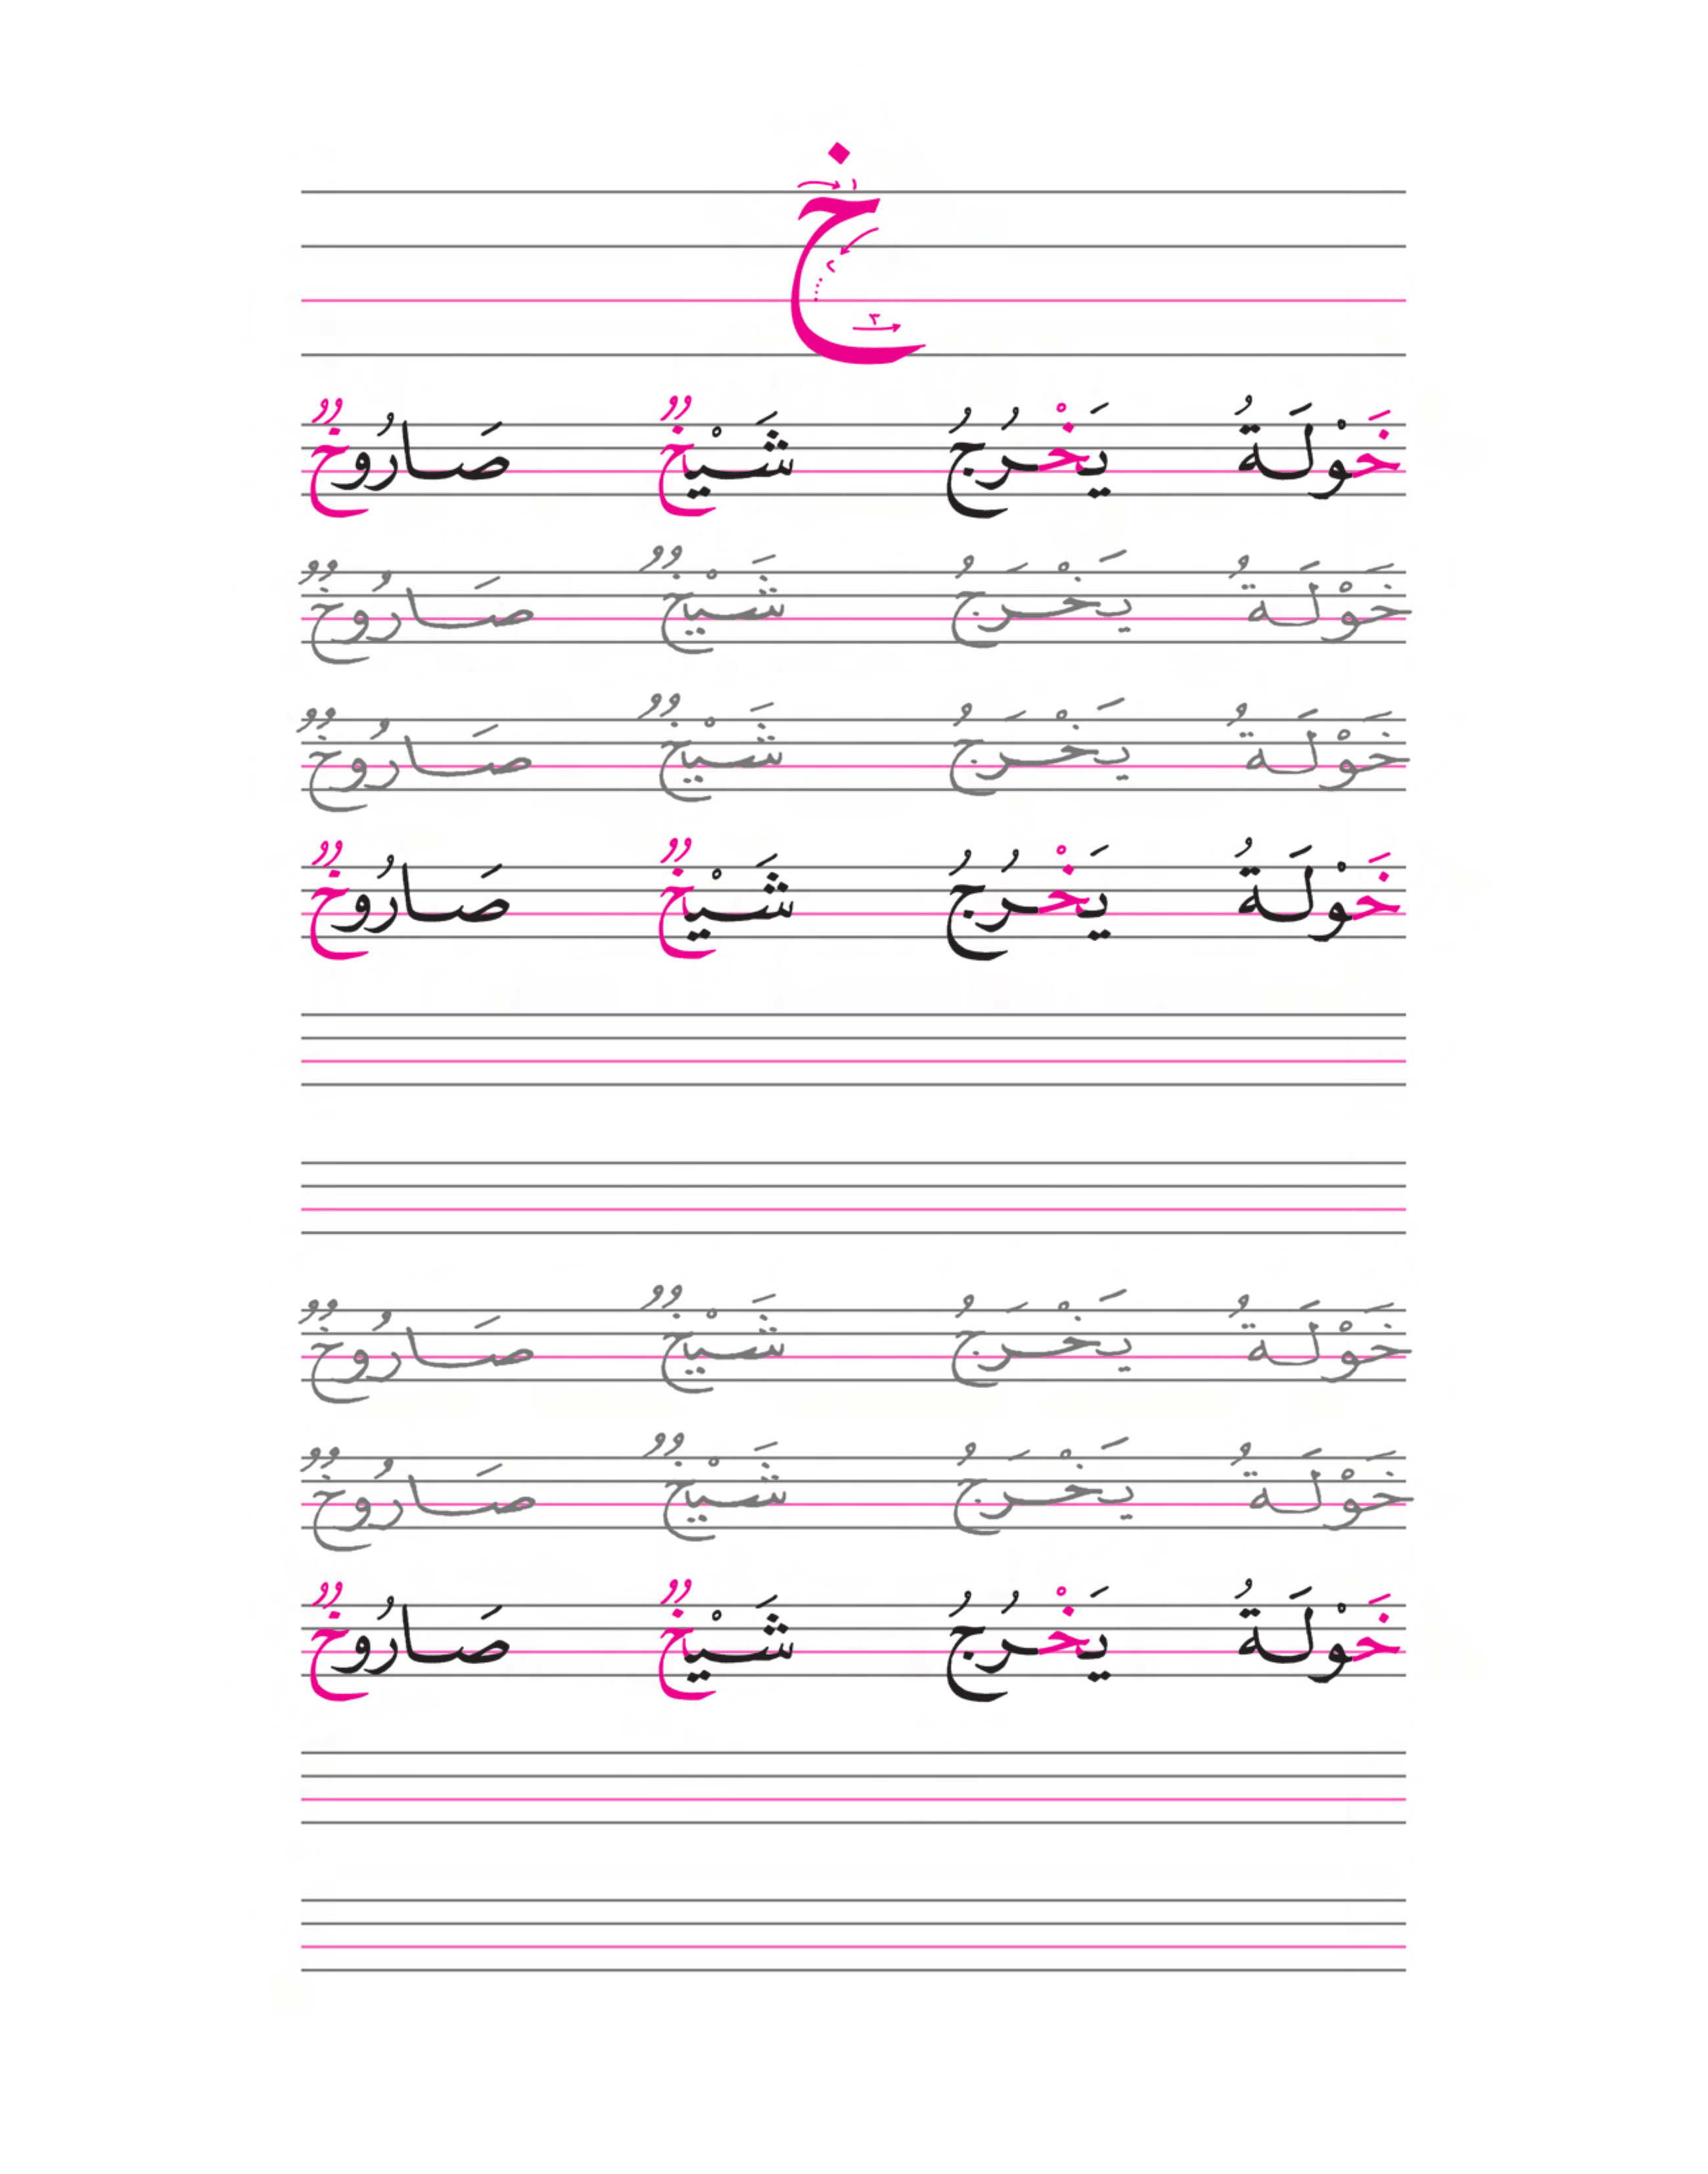 خ
١ ٢ ٣
خَوْلَةُ يَخْرُجُ شَيْخٌ صَارُوخٌ
خَوْلَةُ يَخْرَجُ شَيْخٌ صَارُوخٌ
خَوْلَةُ يَخْرَجُ شَيْخٌ صَارُوخٌ
خَوْلَةُ يَخْرُجُ شَيْخٌ صَارُوخٌ
خَوْلَةُ يَخْرَجُ شَيْخٌ صَارُوخٌ
خَوْلَةُ يَخْرَجُ شَيْخٌ صَارُوخٌ
خَوْلَةُ يَخْرُجُ شَيْخٌ صَارُوخٌ